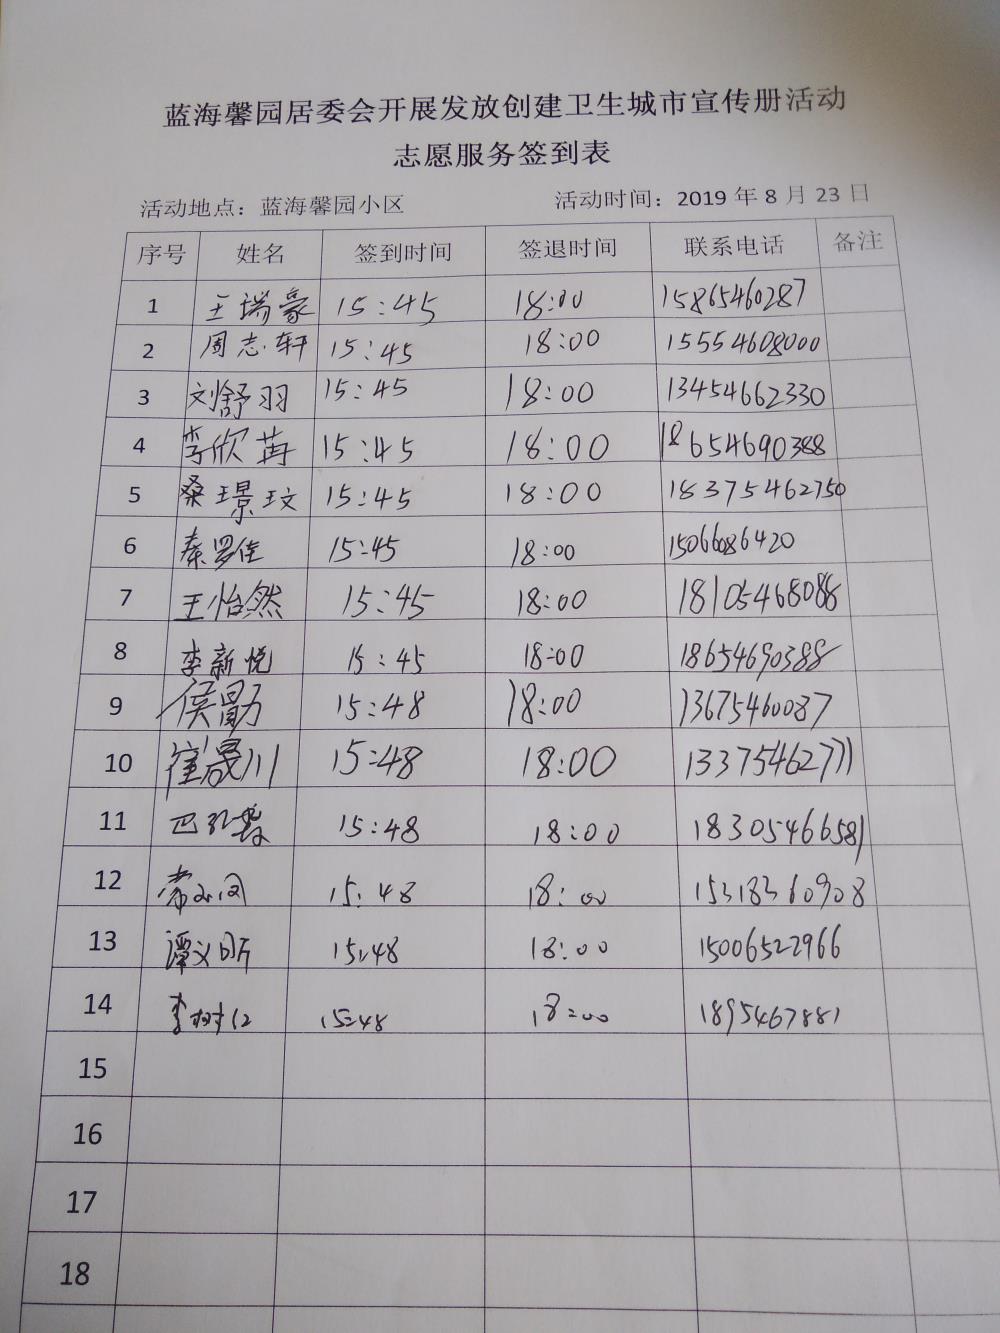 蓝海馨园居委会开展发放创建卫生城市宣传册活动
志愿服务签到表
活动地点：蓝海馨园小区 活动时间：2019年8月23日
序号 姓名 签到时间 签退时间 联系电话 备注
1 王瑞豪 15:45 18:00 15865460287
2 周志轩 15:45 18:00 15554608000
3 刘舒羽 15:45 18:00 13454662330
4 李欣苒 15:45 18:00 18654690388
5 桑璟玟 15:45 18:00 18375462750
6 秦 15:45 18:00 15066086420
7 王怡然 15:45 18:00 18105468088
8 李新悦 15:45 18:00 18654690388
9 侯勖 15:48 18:00 13675460087
10 崔晟川 15:48 18:00
11 15:48 18:00 18305466581
12 15:48 18:00 15318360908
13 谭义昕 15:48 18:00 15006522966
14 15:48 18:00
15
16
17
18